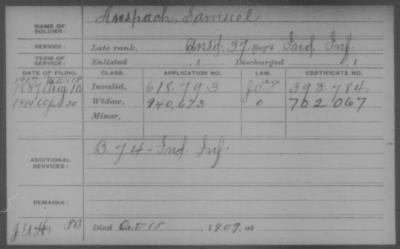 NAME OF SOLDIER: Anspach, Samuel
SERVICE: Late rank, Unsd. 37 Reg't Ind Inf.
TERM OF SERVICE: Enlisted , 1 Discharged , 1
DATE OF FILING. CLASS. APPLICATION NO. LAW. CERTIFICATE NO.
1887 Aug 10 Invalid, 618.793 393.784
30 Widow, 940,673 702.067
Minor,
ADDITIONAL SERVICES: B 74 - Ind Inf.
REMARKS:
Died Oct 18 1909, at